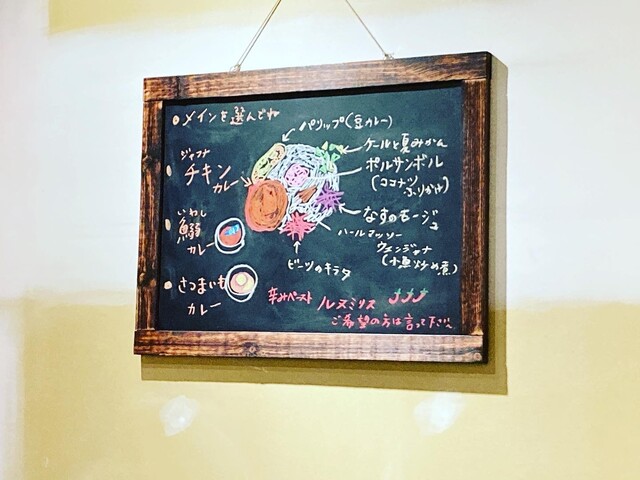 メインを選んでね
ジャフナ
チキン
カレー
いわし
鰯
カレー
さつまいも
カレー
パリップ(豆カレー)
ケールと夏みかん
ポルサンボル
(ココナツ
ふりかけ)
なすのモージュ
ハールマッソー
ウェンジャナ
(小魚炒め煮)
ビーツのキラタ
辛みペースト ルヌミリス
ご希望の方は言って下さい